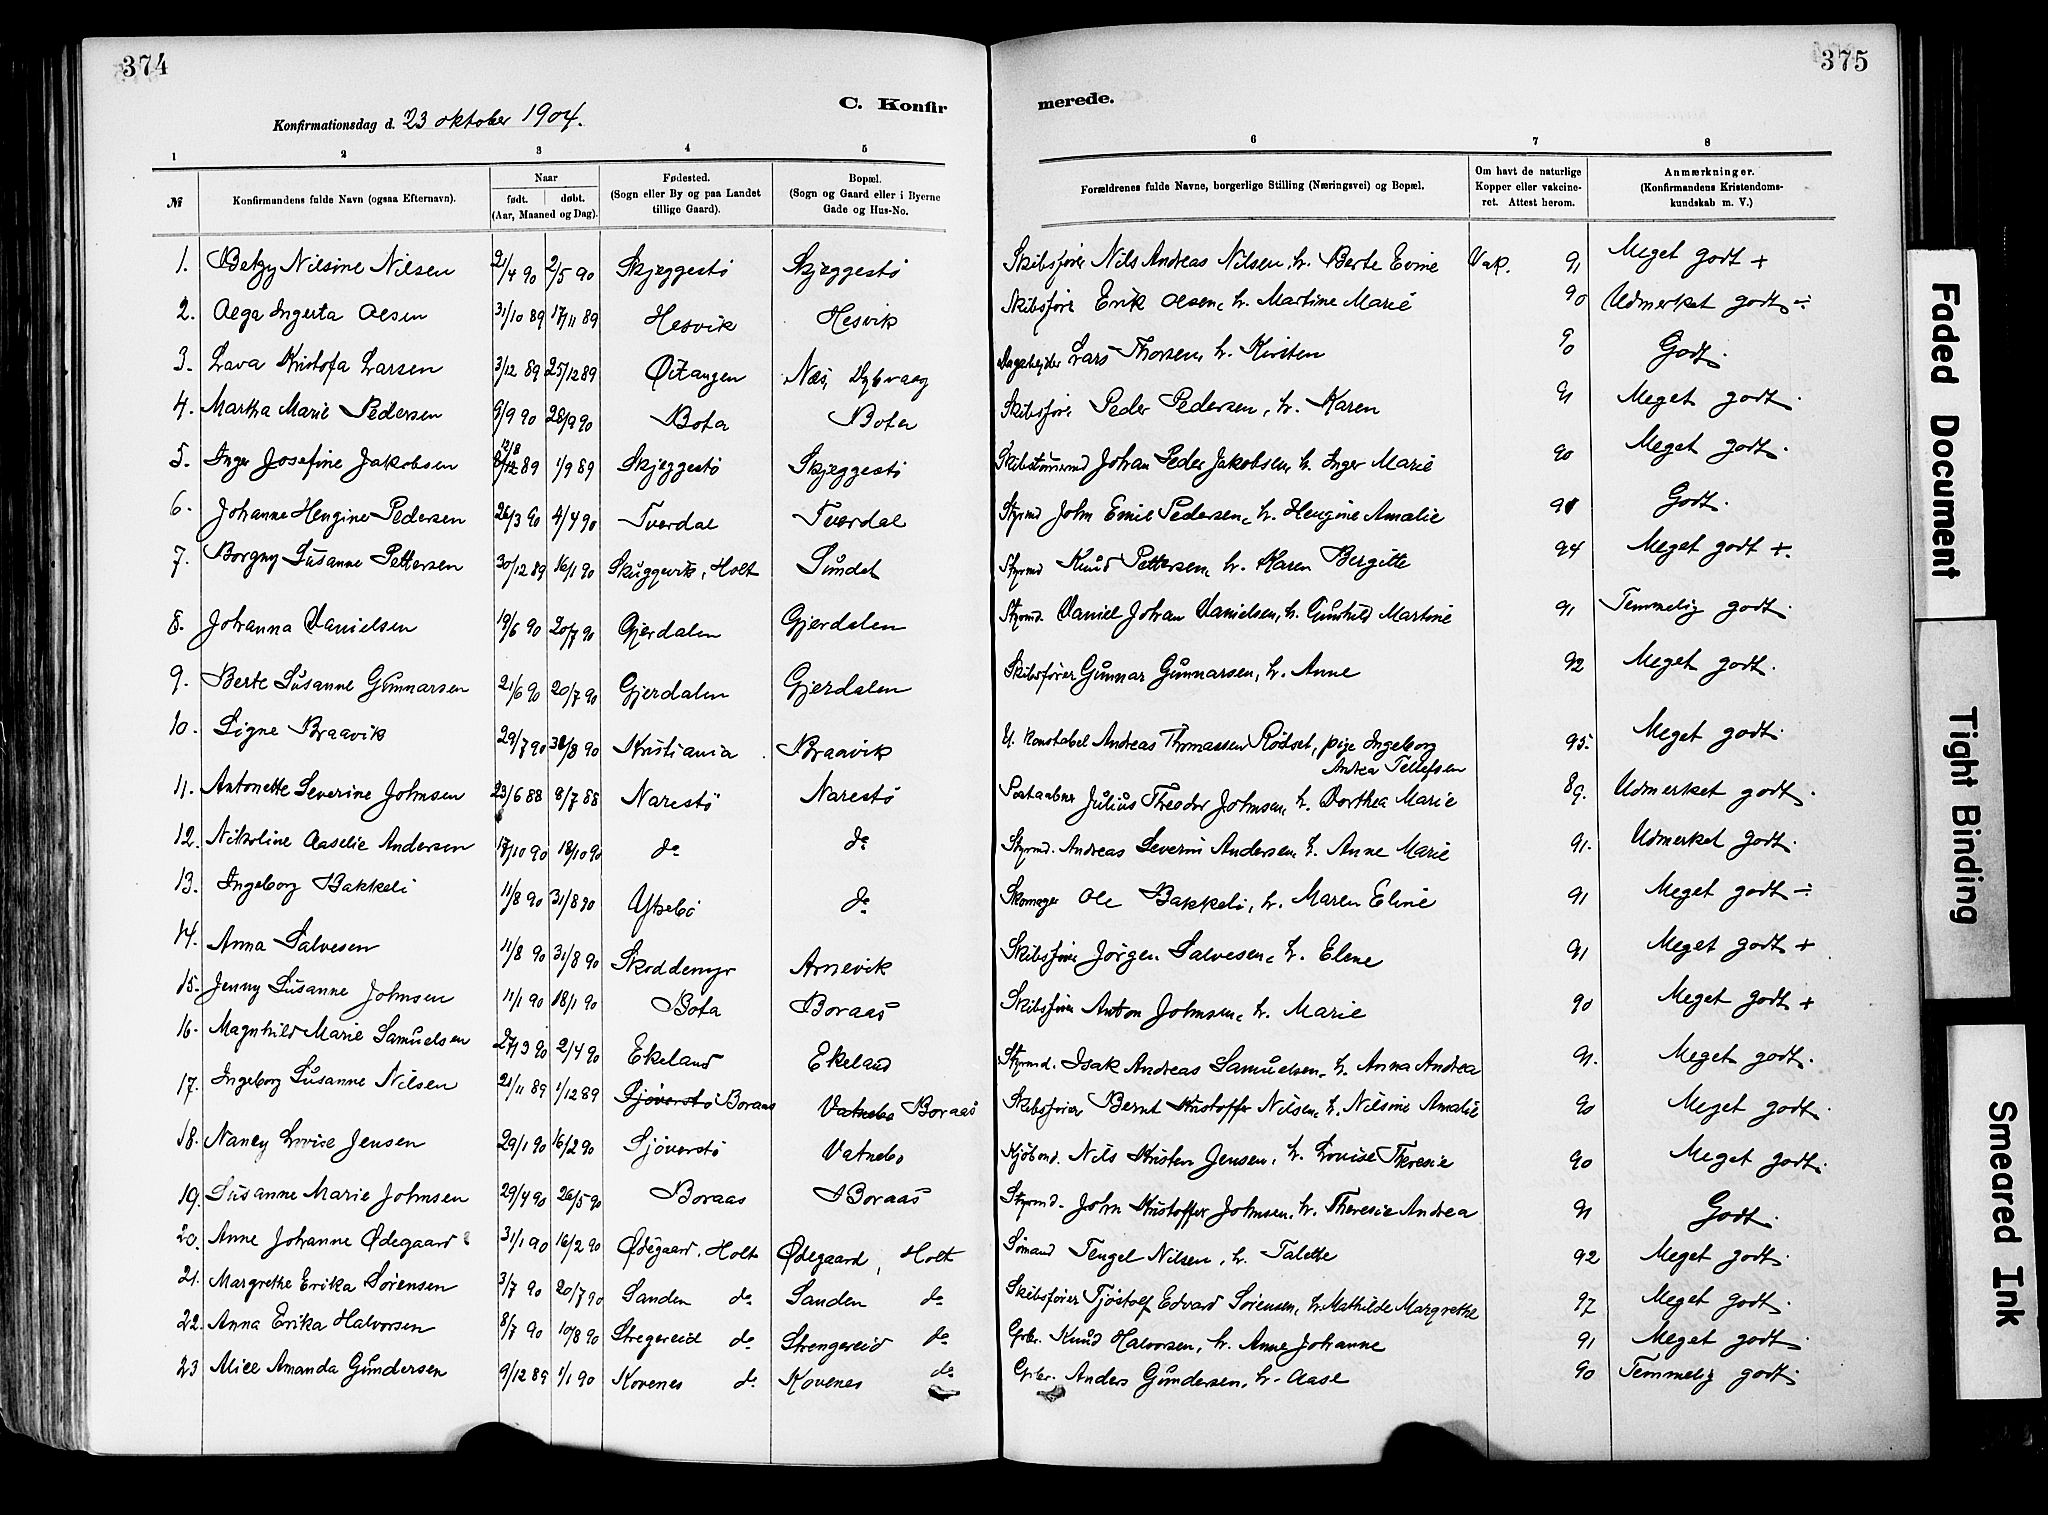 374
375
C. Konfir
merede.
Konfirmationsdag d. 23 oktober 1904.
1 2 3 4 5 6 7 8
№ Konfirmandens fulde Navn (ogsaa Efternavn). Naar født. døbt. (Aar, Maaned og Dag). Fødested. (Sogn eller By og paa Landet tillige Gaard). Bopæl. (Sogn og Gaard eller i Byerne Gade og Hus-No. Forældrenes fulde Navne, borgerlige Stilling (Næringsvei) og Bopæl. Om havt de naturlige Kopper eller vakcineret. Attest herom. Anmærkninger. (Konfirmandens Kristendomskundskab m. V.)
1. Betzy Nilsine Nilsen 2/4 90 2/5 90 Skjeggestö Skjeggestö Skibsfører Nils Andreas Nilsen, h. Berte Evine Vak. 91 Meget godt +
2. Olga Ingerta Olsen 31/10 89 17/11 89 Hesvik Hesvik Skibsfører Erik Olsen, h. Martine Marie 90 Udmerket godt ÷
3. Lava Kristofa Larsen 3/12 89 25/12 89 Næs, Dybvaag Lars Thorsen, h. Kirsten 90 Godt.
4. Martha Marie Pedersen 9/9 90 28/9 90 Bota Bota Skibsfører Peder Pedersen, h. Karen 91 Meget godt.
5. Inger Josefine Jakobsen 12/8 89 1/9 89 Skjeggestö Skjeggestö Skibstømmrmd Johan Peder Jakobsen, h. Inger Marie 90 Meget godt.
6. Johanne Hengine Pedersen 26/3 90 4/4 90 Tverdal Tverdal Styrmd John Emil Pedersen, h. Hengine Amalie 91 Godt.
7. Borgny Susanne Pettersen 30/12 89 16/1 90 Skuggevik, Holt Sundet Styrmd Knud Pettersen, h. Karen Bergitte 94 Meget godt +.
8. Johanna Danielsen 19/6 90 20/7 90 Gjerdalen Gjerdalen Styrmd. Daniel Johan Danielsen, h. Gunhild Martine 91 Temmelig godt.
9. Berte Susanne Gunnarsen 21/6 90 20/7 90 Gjerdalen Gjerdalen Skibsfører Gunnar Gunnarsen, h. Anne 92 Meget godt.
10. Signe Braavik 29/7 90 31/8 90 Kristiania Braavik U. konstabel Andreas Thomassen Rødset, pige Ingeborg Andrea Tellefsen 95. Meget godt.
11. Antonette Severine Johnsen 23/6 88 8/7 88 Narestö Narestö Postaabner Julius Theodor Johnsen, h. Dorthea Marie 89. Udmerket godt.
12. Nikoline Aaselie Andersen 17/10 90 18/10 90 do do Styrmd. Andreas Severin Andersen, h. Anne Marie 91. Udmerket godt.
13. Ingeborg Bakkeli 11/8 90 31/8 90 Ytrebö do Skomager Ole Bakkeli, h. Maren Eline 91 Meget godt ÷
14. Anna Salvesen 11/8 90 31/8 90 Skoddemyr Arnevik Skibsfører Jørgen Salvesen, h. Elene 91 Meget godt +
15. Jenny Susanne Johnsen 11/1 90 18/1 90 Bota Boraas Skibsfører Anton Johnsen, h. Marie 90 Meget godt +
16. Magnhild Marie Samuelsen 27/3 90 2/4 90 Ekeland Ekeland Styrmd. Isak Andreas Samuelsen, h. Anna Andrea 91. Meget godt.
17. Ingeborg Susanne Nilsen 21/11 89 1/12 89 Sjöverstö Boraas Vatnebo Boraas Skibsfører Bernt Kristoffer Nilsen, h. Nilsine Amalie 90 Meget godt.
18. Nancy Lovise Jensen 29/1 90 16/2 90 Sjöverstö Vatnebo Kjöbmd. Nils Kristen Jensen, h. Lovise Theresie 90 Meget godt.
19. Susanne Marie Johnsen 29/4 90 26/5 90 Boraas Boraas Styrmd. John Kristoffer Johnsen, h. Theresie Andrea 91 Godt.
20. Anne Johanne Ødegaard 31/1 90 16/2 90 Ødegaard, Holt Ødegaard, Holt Sömand Tengel Nilsen, h. Talette 92 Meget godt.
21. Margrethe Erika Sörensen 3/7 90 20/7 90 Sanden do Sanden do Skibsfører Tjöstolf Edvard Sörensen, h. Mathilde Margrethe 97 Meget godt.
22. Anna Erika Halvorsen 8/7 90 10/8 90 Stregereid do Strengereid do Gbr. Knud Halvorsen, h. Anne Johanne 91 Meget godt.
23 Alice Amanda Gundersen 9/12 89 1/1 90 Kovenes do Kovenes do Gbr. Anders Gundersen, h. Aase 90 Temmelig godt.
Faded Document
Tight Binding
Smeared Ink